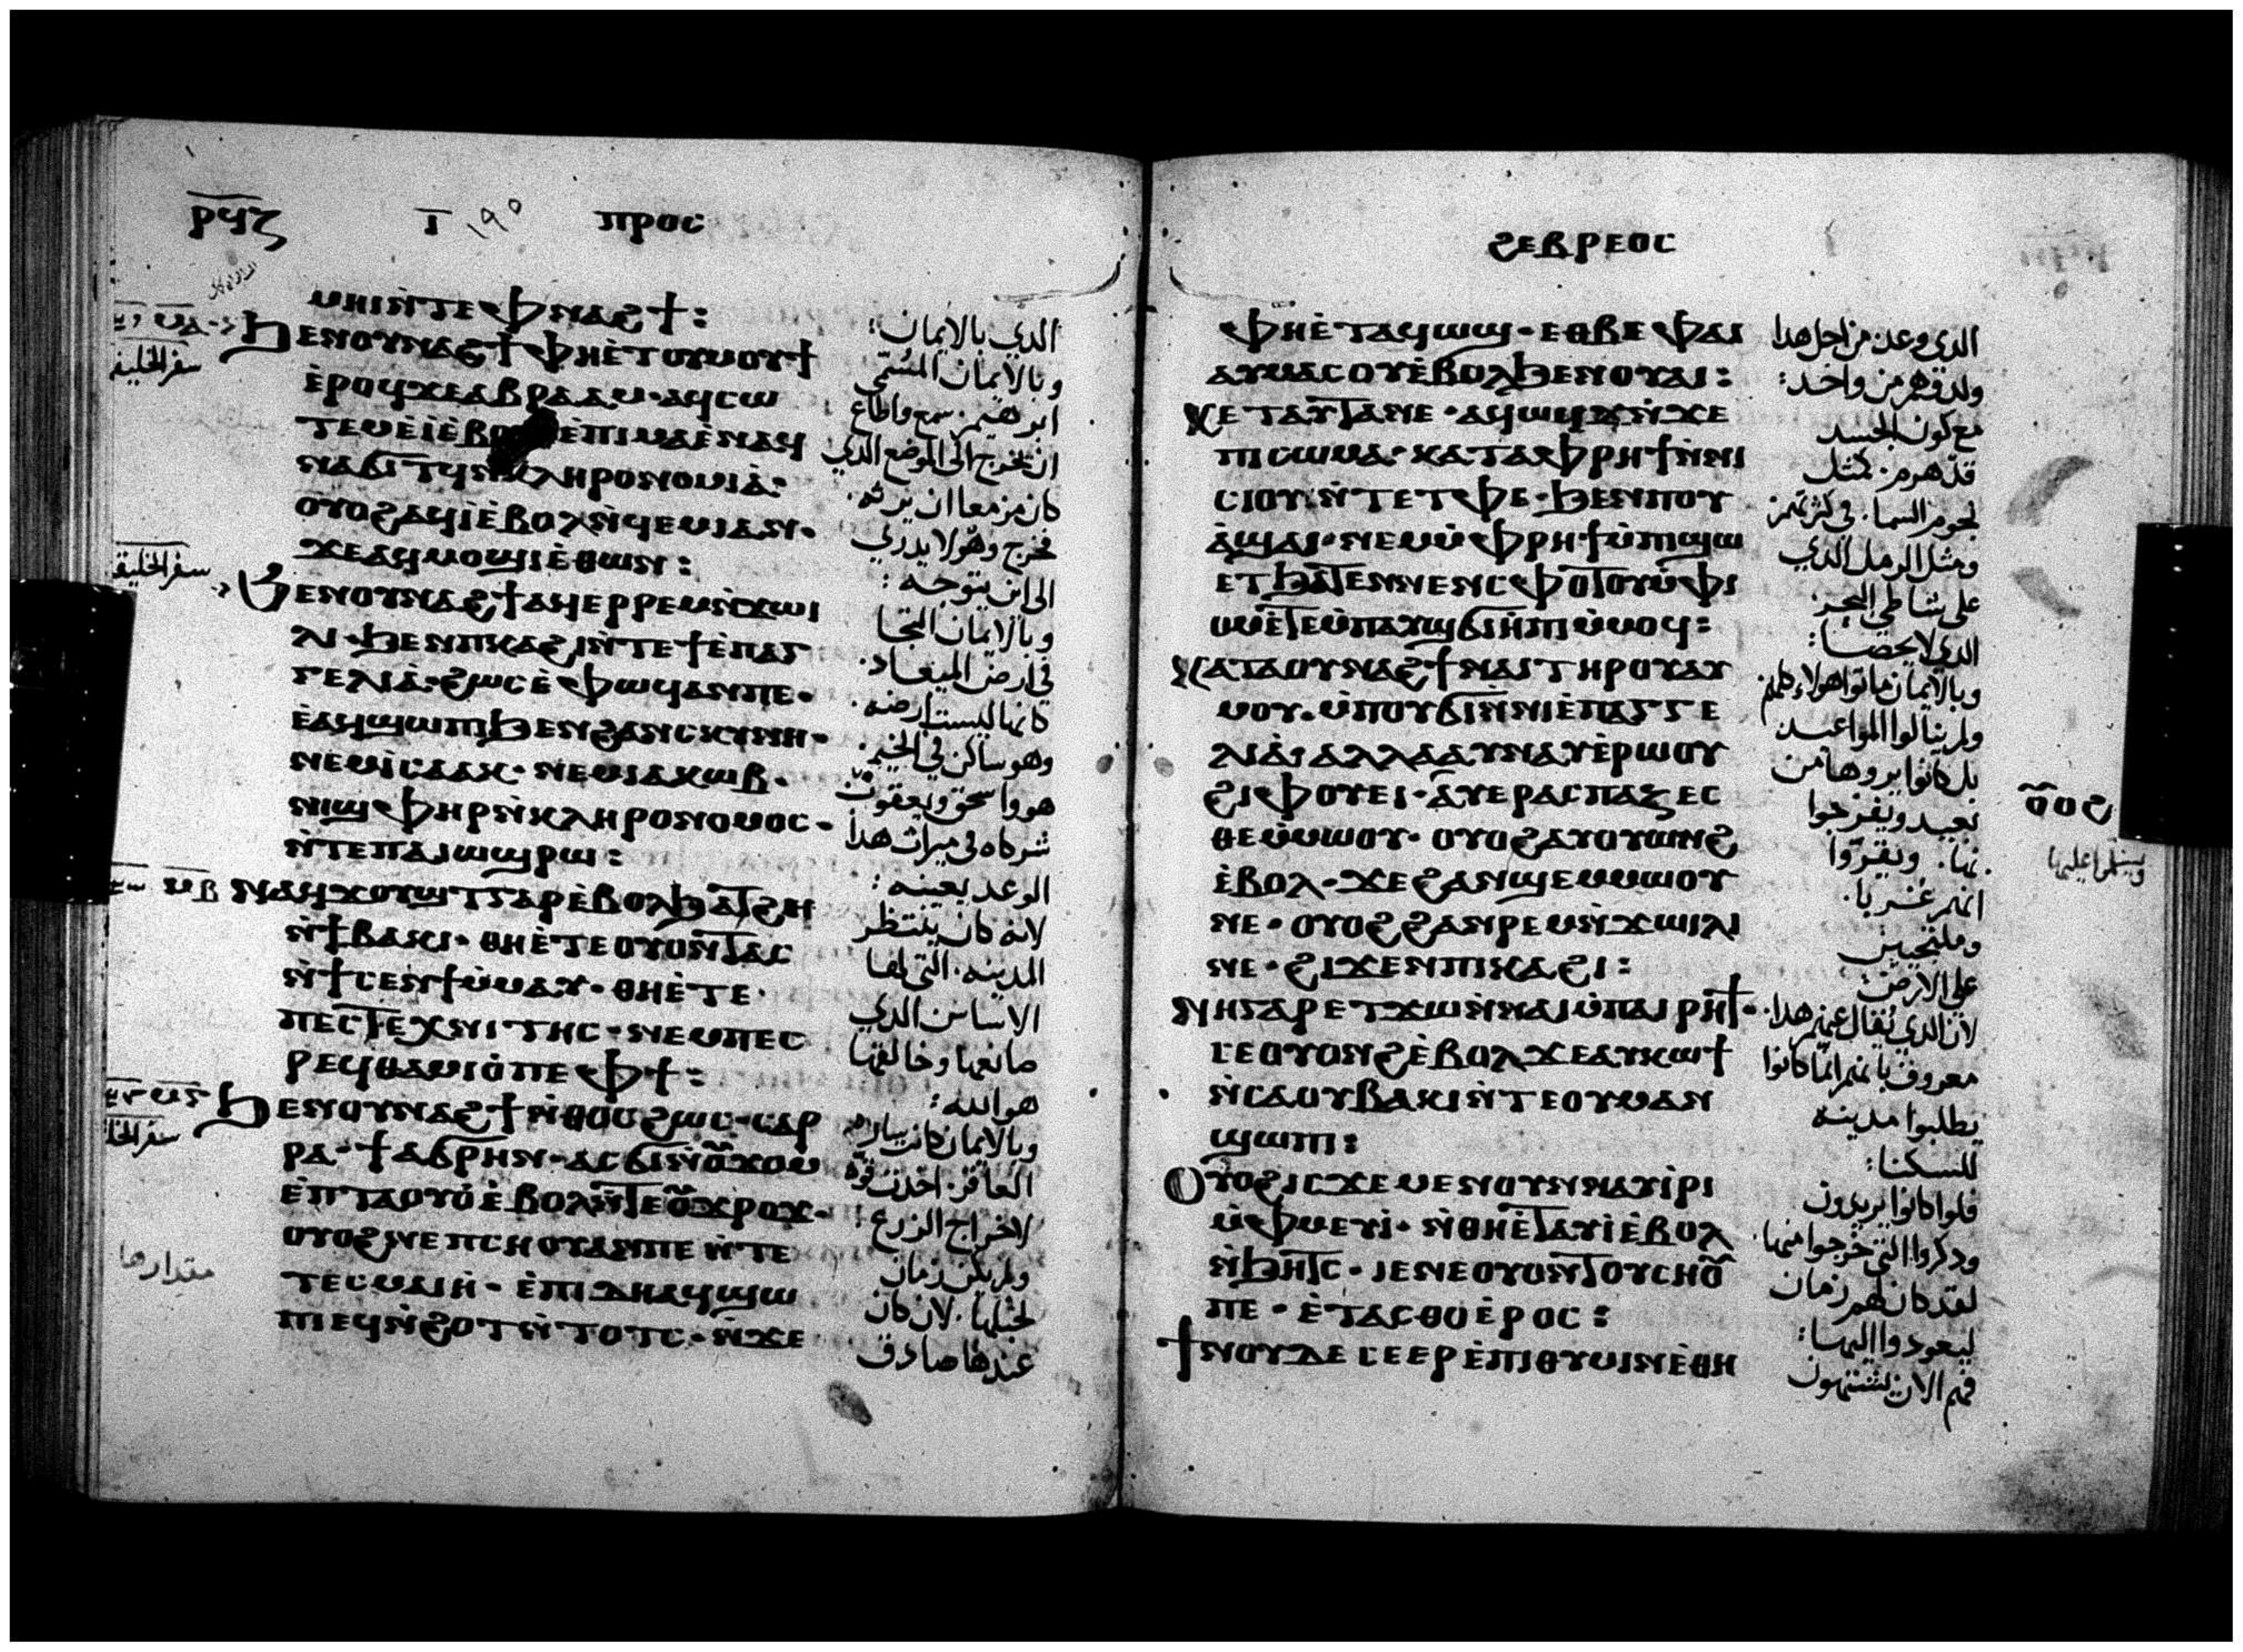 ⲣϥⲍ ⲓ ١٩٥ ⲡⲣⲟⲥ
ⲙⲏⲓⲛ̀ⲧⲉⲫⲛⲁϩϯ:
ϧⲉⲛⲟⲩⲛⲁϩϯⲫⲏⲉ̀ⲧⲟⲩⲙⲟⲩϯ
ⲉ̀ⲣⲟϥϫⲉⲁⲃⲣⲁⲁⲙ·ⲁϥⲥⲱ
ⲧⲉⲙⲉ̀ⲓ̀ⲉ̀ⲃⲟ ⲉ̀ⲡⲓⲙⲁⲉ̀ⲛⲁϥ
ⲛⲁϭⲓⲧϥⲛ̀ⲕⲗⲏⲣⲟⲛⲟⲙⲓⲁ̀:
ⲟⲩⲟϩⲁϥⲓ̀ⲉ̀ⲃⲟⲗⲛ̀ϥⲉⲙⲓⲁⲛ·
ϫⲉⲁϥⲙⲟϣⲓⲉ̀ⲑⲱⲛ:
ϧⲉⲛⲟⲩⲛⲁϩϯⲁϥⲉⲣⲣⲉⲙⲛ̀ϫⲱⲓ
ⲗⲓ·ϧⲉⲛⲡⲕⲁϩⲓⲛ̀ⲧⲉϯⲉ̀ⲡⲁⲅ
ⲅⲉⲗⲓⲁ̀·ϩⲱⲥⲉ̀ⲫⲱϥⲁⲛⲡⲉ·
ⲉ̀ⲁϥϣⲱⲡⲓϧⲉⲛϩⲁⲛⲥⲕⲩⲛⲏ·
ⲛⲉⲙⲓ̀ⲥⲁⲁⲕ·ⲛⲉⲙⲓⲁⲕⲱⲃ·
ⲛⲓϣⲫⲏⲣⲛ̀ⲕⲗⲏⲣⲟⲛⲟⲙⲟⲥ·
ⲛ̀ⲧⲉⲡⲁⲓⲱϣⲣⲱ:
ⲛⲁϥϫⲟⲩϣⲧⲅⲁⲣⲉ̀ⲃⲟⲗϧⲁⲧϩⲏ
ⲛ̀ϯⲃⲁⲕⲓ·ⲑⲏⲉ̀ⲧⲉⲟⲩⲟⲛⲧⲁⲥ
ⲛ̀ϯⲥⲉⲛϯⲙ̀ⲙⲁⲩ·ⲑⲏⲉ̀ⲧⲉ·
ⲡⲉⲥⲧⲉⲭⲛⲓⲧⲏⲥ·ⲛⲉⲙⲡⲉⲥ
ⲣⲉϥⲑⲁⲙⲓⲟ̀ⲡⲉⲫϯ:
ϧⲉⲛⲟⲩⲛⲁϩϯⲛ̀ⲑⲟⲥϩⲱⲥ·ⲥⲁⲣ
ⲣⲁ·ϯⲁϭⲣⲏⲛ·ⲁⲥϭⲓⲛ̀ⲟ̅ⲭⲟⲙ
ⲉ̀ⲡⲧⲁⲟⲩⲟ̀ⲉ̀ⲃⲟⲗⲛ̀ⲧⲉⲟ̅ϫⲣⲟϫ·
ⲟⲩⲟϩⲛⲉⲡⲥⲏⲟⲩⲁⲛⲡⲉⲛ̀ⲧⲉ
ⲧⲉⲥⲙⲁⲓⲏ̀·ⲉ̀ⲡⲓⲇⲏⲁϥϣⲱ
ⲡⲓⲉϥⲛ̀ϩⲟⲧⲛ̀ⲧⲟⲧⲥ·ⲛ̀ϫⲉ
الذي بالايمان:
وبالايمان المسمى
ابرهيم. سمع واطاع
ان يخرج الى الموضع الذي
كان مزمعا ان يرثه.
فخرج وهو لا يدري
الى اين يتوجه:
وبالايمان التجا
في ارض الميعاد.
كانها ليست ارضه.
وهو ساكن في الخيم.
هو واسحق ويعقوب
شركاه في ميراث هذا
الوعد بعينه:
لانه كان ينتظر
المدينه. التي لها
الاساس الذي
صانعها وخالقها
هو الله:
وبالايمان كانت ساره
العاقر. اخذت قوه
لاخراج الزرع:
ولم يكن زمان
لحبلها. لان كان
عندها صادق
سفر الخليقه
سفر الخليقه
سفر الخل
مقدارها
ϩⲉⲃⲣⲉⲟⲥ
ⲫⲏⲉ̀ⲧⲁϥⲱϣ·ⲉⲑⲃⲉⲫⲁⲓ
ⲁⲩⲙⲁⲥⲟⲩⲉ̀ⲃⲟⲗϧⲉⲛⲟⲩⲁⲓ:
ϫⲉⲧⲁⲩⲧⲁⲛⲉ·ⲁϥⲱϣϫⲛ̀ϫⲉ
ⲡⲓⲥⲱⲙⲁ·ⲕⲁⲧⲁⲫⲣⲏϯⲛ̀ⲛⲓ
ⲥⲓⲟⲩⲛ̀ⲧⲉⲧⲫⲉ·ϧⲉⲛⲡⲟⲩ
ⲁ̀ϣⲁⲓ·ⲛⲉⲙⲙ̀ⲫⲣⲏϯⲙ̀ⲡⲓϣⲱ
ⲉⲧϧⲁⲧⲉⲛⲛⲉⲛⲥⲫⲟⲧⲟⲩⲙ̀ⲫⲓ
ⲟⲙⲉ̀ⲧⲉⲙ̀ⲡⲁⲩϣϭⲓⲏ̀ⲡⲓⲙ̀ⲙⲟϥ:
ⲕⲁⲧⲁⲟⲩⲛⲁϩϯⲛⲁⲓⲧⲏⲣⲟⲩⲁⲩ
ⲙⲟⲩ·ⲙ̀ⲡⲟⲩϭⲓⲛ̀ⲛⲓⲉ̀ⲡⲁⲅⲅⲉ
ⲗⲓⲁ̀·ⲁⲗⲗⲁⲁⲩⲛⲁⲩⲉ̀ⲣⲱⲟⲩ
ϩⲓⲫⲟⲩⲉⲓ·ⲁ̀ⲩⲉⲣⲁⲥⲡⲁⲍⲉⲥ
ⲑⲉⲙ̀ⲙⲱⲟⲩ·ⲟⲩⲟϩⲁⲩⲟⲩⲱⲛϩ
ⲉ̀ⲃⲟⲗ·ϫⲉϩⲁⲛϣⲉⲙⲙⲱⲟⲩ
ⲛⲉ·ⲟⲩⲟϩϩⲁⲛⲣⲉⲙⲛ̀ϫⲱⲓⲗⲓ
ⲛⲉ·ϩⲓϫⲉⲛⲡⲓⲕⲁϩⲓ:
ⲛⲏⲅⲁⲣⲉⲧϫⲱⲛ̀ⲛⲁⲓⲙ̀ⲡⲁⲓⲣⲏϯ·
ⲥⲉⲟⲩⲟⲛϩⲉ̀ⲃⲟⲗϫⲉⲁⲩⲕⲱϯ
ⲛ̀ⲥⲁⲟⲩⲃⲁⲕⲓⲛ̀ⲧⲉⲟⲩⲙⲁⲛ
ϣⲱⲡⲓ:
ⲟⲩⲟϩⲓⲥϫⲉⲙⲉⲛⲟⲩⲛⲛⲁⲩⲓ̀ⲣⲓ
ⲙ̀ⲫⲙⲉⲩⲓ̀·ⲛ̀ⲑⲏⲉ̀ⲧⲁⲩⲓ̀ⲉ̀ⲃⲟⲗ
ⲛ̀ϧⲏⲧⲥ·ⲓⲉⲛⲉⲟⲩⲟⲛⲧⲟⲩⲥⲏⲟ̅
ⲡⲉ·ⲉ̀ⲧⲁⲥⲑⲟⲉ̀ⲣⲟⲥ:
ϯⲛⲟⲩⲇⲉⲥⲉⲉⲣⲉ̀ⲡⲓⲑⲩⲙⲓⲛⲉ̀ⲑⲏ
الذي وعد. من اجل هذا
ولد قوم من واحد:
مع كون الجسد
قد هرم. كمثل
نجوم السما. في كثرتهم
ومثل الرمل الذي
على شاطي البحر.
الذي لا يحصا:
وبالايمان ماتوا هولاء كلهم.
ولم ينالوا المواعيد
بل كانوا يروها من
بعيد ويفرحوا
بها. ويقروا
انهم غربا.
وملتجيين
على الارض:
لان الذي يقال عنهم هذا.
معروف بانهم انما كانوا
يطلبوا مدينه
للسكنا:
فلو كانوا يريدون
وذكروا التي خرجوا منها.
لقد كان لهم زمان
ليعودوا اليها:
فهم الان يشتهون